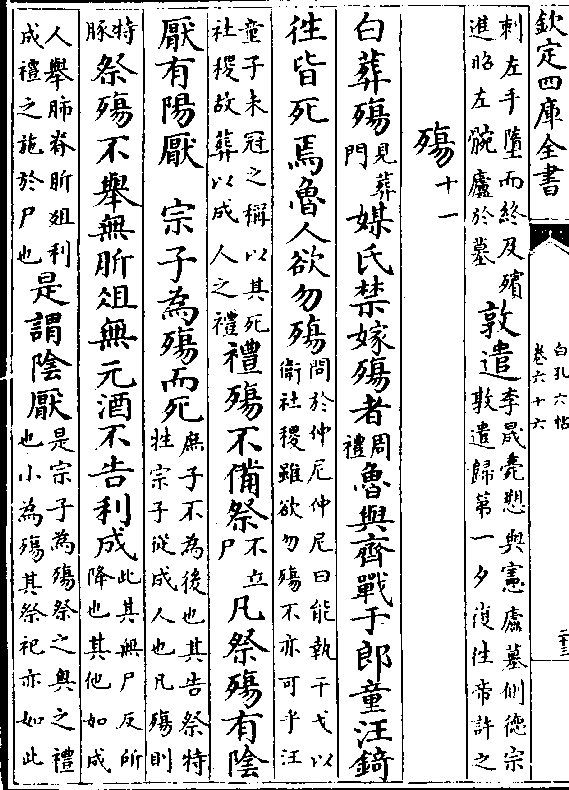 欽定四庫全書
刺左手墮而終及殯
進昭左腕廬於墓
敦遣
李晟薨愬與憲廬墓側德宗
敦遣歸第一夕復往帝許之
殤
十一
白
葬殤
見葬
門
媒氏禁嫁殤者
周
禮
魯與齊戰于郎童汪錡
往皆死焉魯人欲勿殤
問於仲尼仲尼曰能執干戈以
衞社稷雖欲勿殤不亦可乎汪
童子未冠之稱以其死
社稷故葬以成人之禮
禮殤不備祭
不立
尸
凡祭殤有陰
厭有陽厭
宗子為殤而死
庶子不為後也其告祭特
牲宗子從成人也凡殤則
特
豚
祭殤不舉無肵俎無元酒不告利成
此其無尸反所
降也其他如成
人舉肺脊肵俎利
成禮之施於尸也
是謂陰厭
是宗子為殤祭之奧之禮
也小為殤其祭祀亦如此
白孔六帖
卷六十六